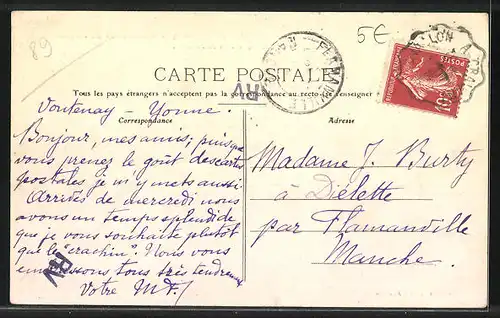 89
5€
CARTE POSTALE
Tous les pays étrangers n'acceptent pas la correspondance au recto. (Se renseigner
Correspondance
Adresse
Vontenay - Yonne.
Bonjour, mes amis; puisque
vous prenez le goût des cartes
postales, je m'y mets aussi.
Arrivés de mercredi nous
avons un temps splendide
que je vous souhaite plutôt
que le "crachin". Nous vous
embrassons tous très tendrement
Votre M.F./
Madame J. Burty
à Diélette
par Flamanville
Manche.
POSTES
10